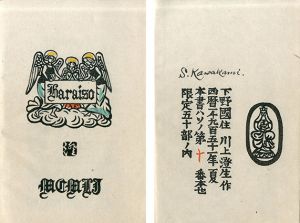 Baraizo
MCMLI
S. Kawakami.
下野國住 川上澄生作
西暦一千九百五十一年夏
本書ハソノ第十番本也
限定五十部ノ内